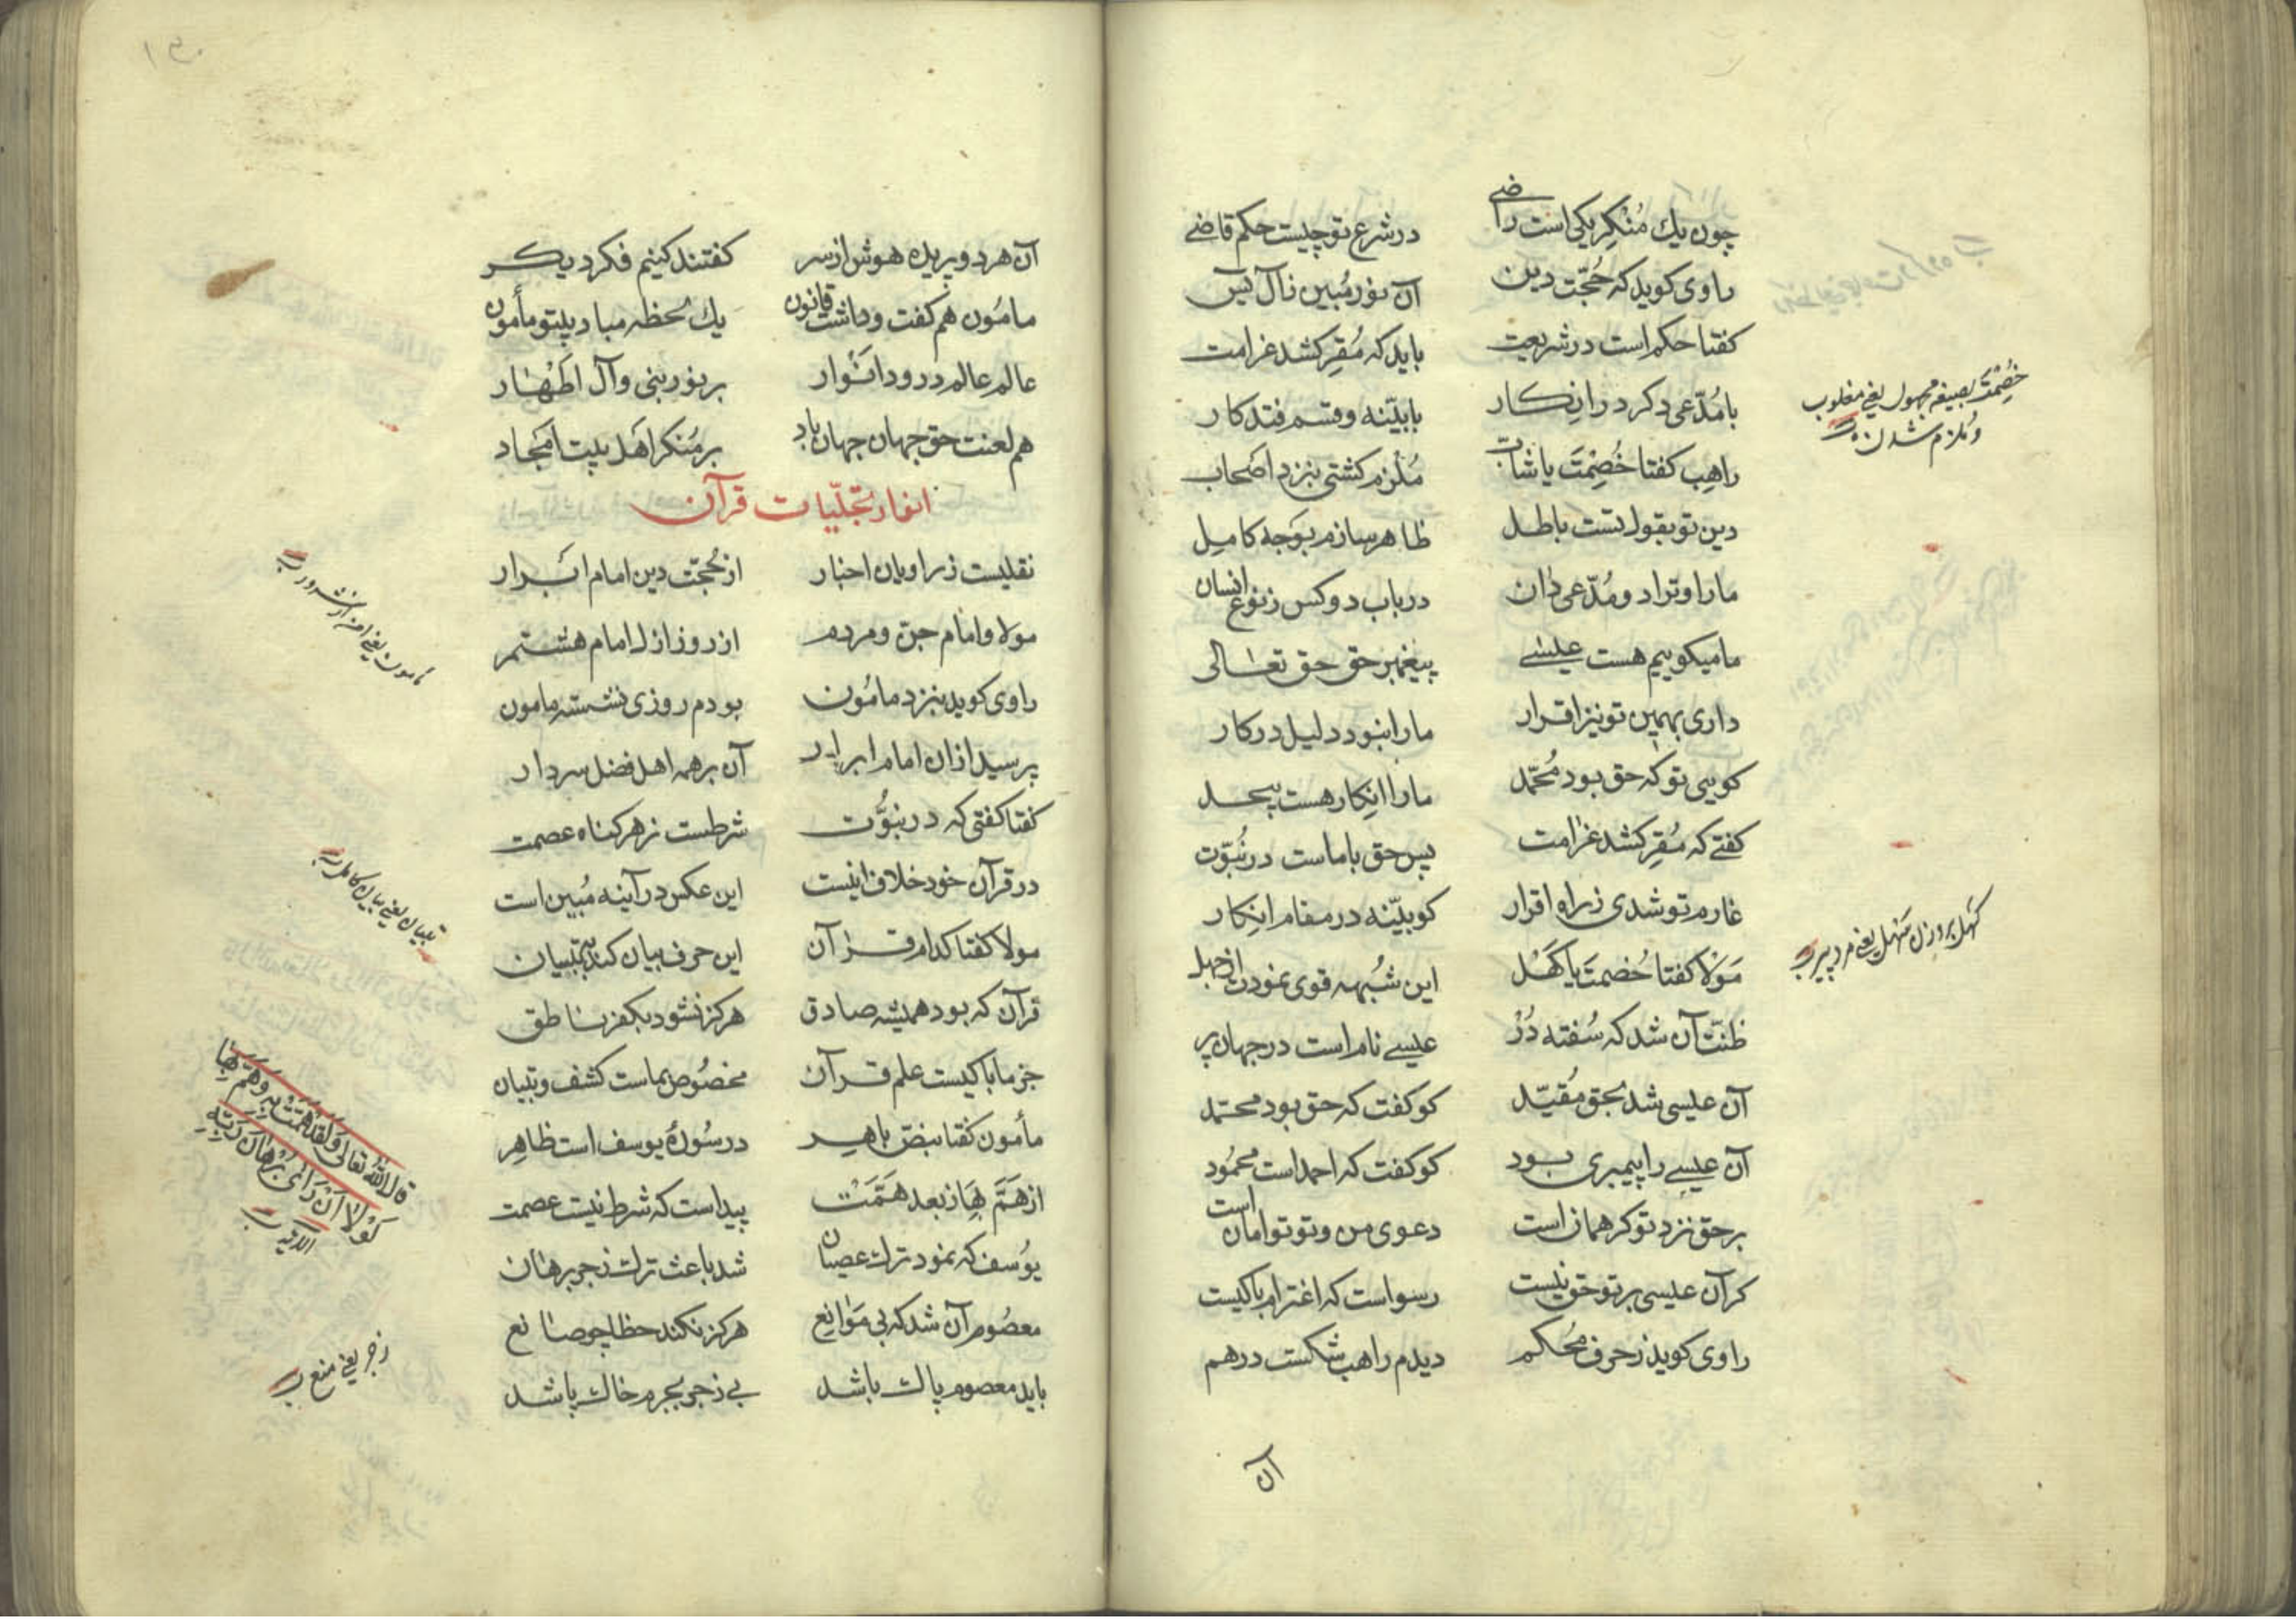 چون یك مُنْکِر یکی است راضے در شرع تو چیست حکم قاضے
راوی کوید که حُجّت دین آن نور مُبین زال یس
کفتا حکم است در شریعت باید که مُقِر کشد غرامت
با مُدّعی دکر در اِنکار با بیّنه و قسم فتد کار
راهِب کفتا خُصِمْتَ یا شابّ مُلْزم کشتی بنزد اصحاب
دین تو بقول تست باطل ظاهر سازم بوَجه کامِل
ما را و ترا دو مُدّعی دان در باب دو کس ز نوع انسان
ما میکوییم هست عیسٰے پیغمبر حق حق تعالی
داری بهمین تو نیز اقرار ما را نبود دلیل در کار
کویی تو که حق بود مُحَمّد ما را اِنکار هست بیحد
کفتے که مُقِر کشد غرامت پس حق با ماست در نُبوّت
غارم تو شدی ز راه اقرار کو بیّنه در مقام اِنکار
مَوْلا کفتا خُصمتَ یا کَهْل این شُبهه قوی نمودت از جهل
ظنّت آن شد که سُفته دُرْ عیسے نام است در جهان پر
آن عیسی شد بحق مُقیّد کو کفت که حق بود محمّد
آن عیسے را پیمبری بود کو کفت که احمد است محمُود
بر حق نزد تو کر همان است دعوی من و تو توامان است
کر آن عیسی بر تو حق نیست رسواست که اغترام با کیست
راوی کوید ز حرف مُحکم دیدم راهب شکست درهم
آن
خُصِمْتَ بصیغه مجهول یعنی مغلوب
و ملزم شدن
کَهل بر وزن سَهل یعنی مرد پیر
آن هر دو پریده هوش از سر کفتند کنیم فکر دیکر
مامُون هم کفت و داشت قانون یك لحظه مباد بیتو مأمون
عالم عالم درود انْوار بر نور نبی و آل اَطْهار
هم لعنت حق جهان جهان باد بر مُنکر اهل بیت امجاد
انوار تجلّیات قرآن
نقلیست ز راویان اخبار از حُجّت دین امام ابرار
مولا و امام جن و مردم از روز ازل امام هشتم
راوی کوید بنزد مامُون بودم روزی نشسته مامون
پرسید ازان امام ابرار آن بر همه اهل فضل سردار
کفتا کفتی که در نبوُّت شرطست ز هر کناه عصمت
در قرآن خود خلاف اینست این عکس در آینه مُبین است
مولا کفتا کدام قرآن این حرف بیان کند بتبیان
قرآن که بود همیشه صادق هرکز نشود بکفر ناطق
جز ما با کیست علم قرآن مخصُوص بماست کشف و تبیان
مأمون کفتا بنصّ باهر در سُورهٔ یوسف است ظاهِر
از هَمَّ بِهَا ز بعد هَمَّتْ پیداست که شرط نیست عصمت
یوُسف که نمود ترك عصیان شد باعث ترك زجر برهان
معصُوم آن شد که بی مَوٰانِع هرکز نکند خطا چو صانع
باید معصوم پاك باشد بے زجر بجرم خاك باشد
مامون یعنی امن از شرور
تبیان یعنی بیان کامل
قال اللّه تعالی وَلَقَدْ هَمَّتْ بِهِ وَهَمَّ بِهَا
لَوْلا اَنْ رَاٰی بُرْهَانَ رَبِّهِ
زجر یعنی منع